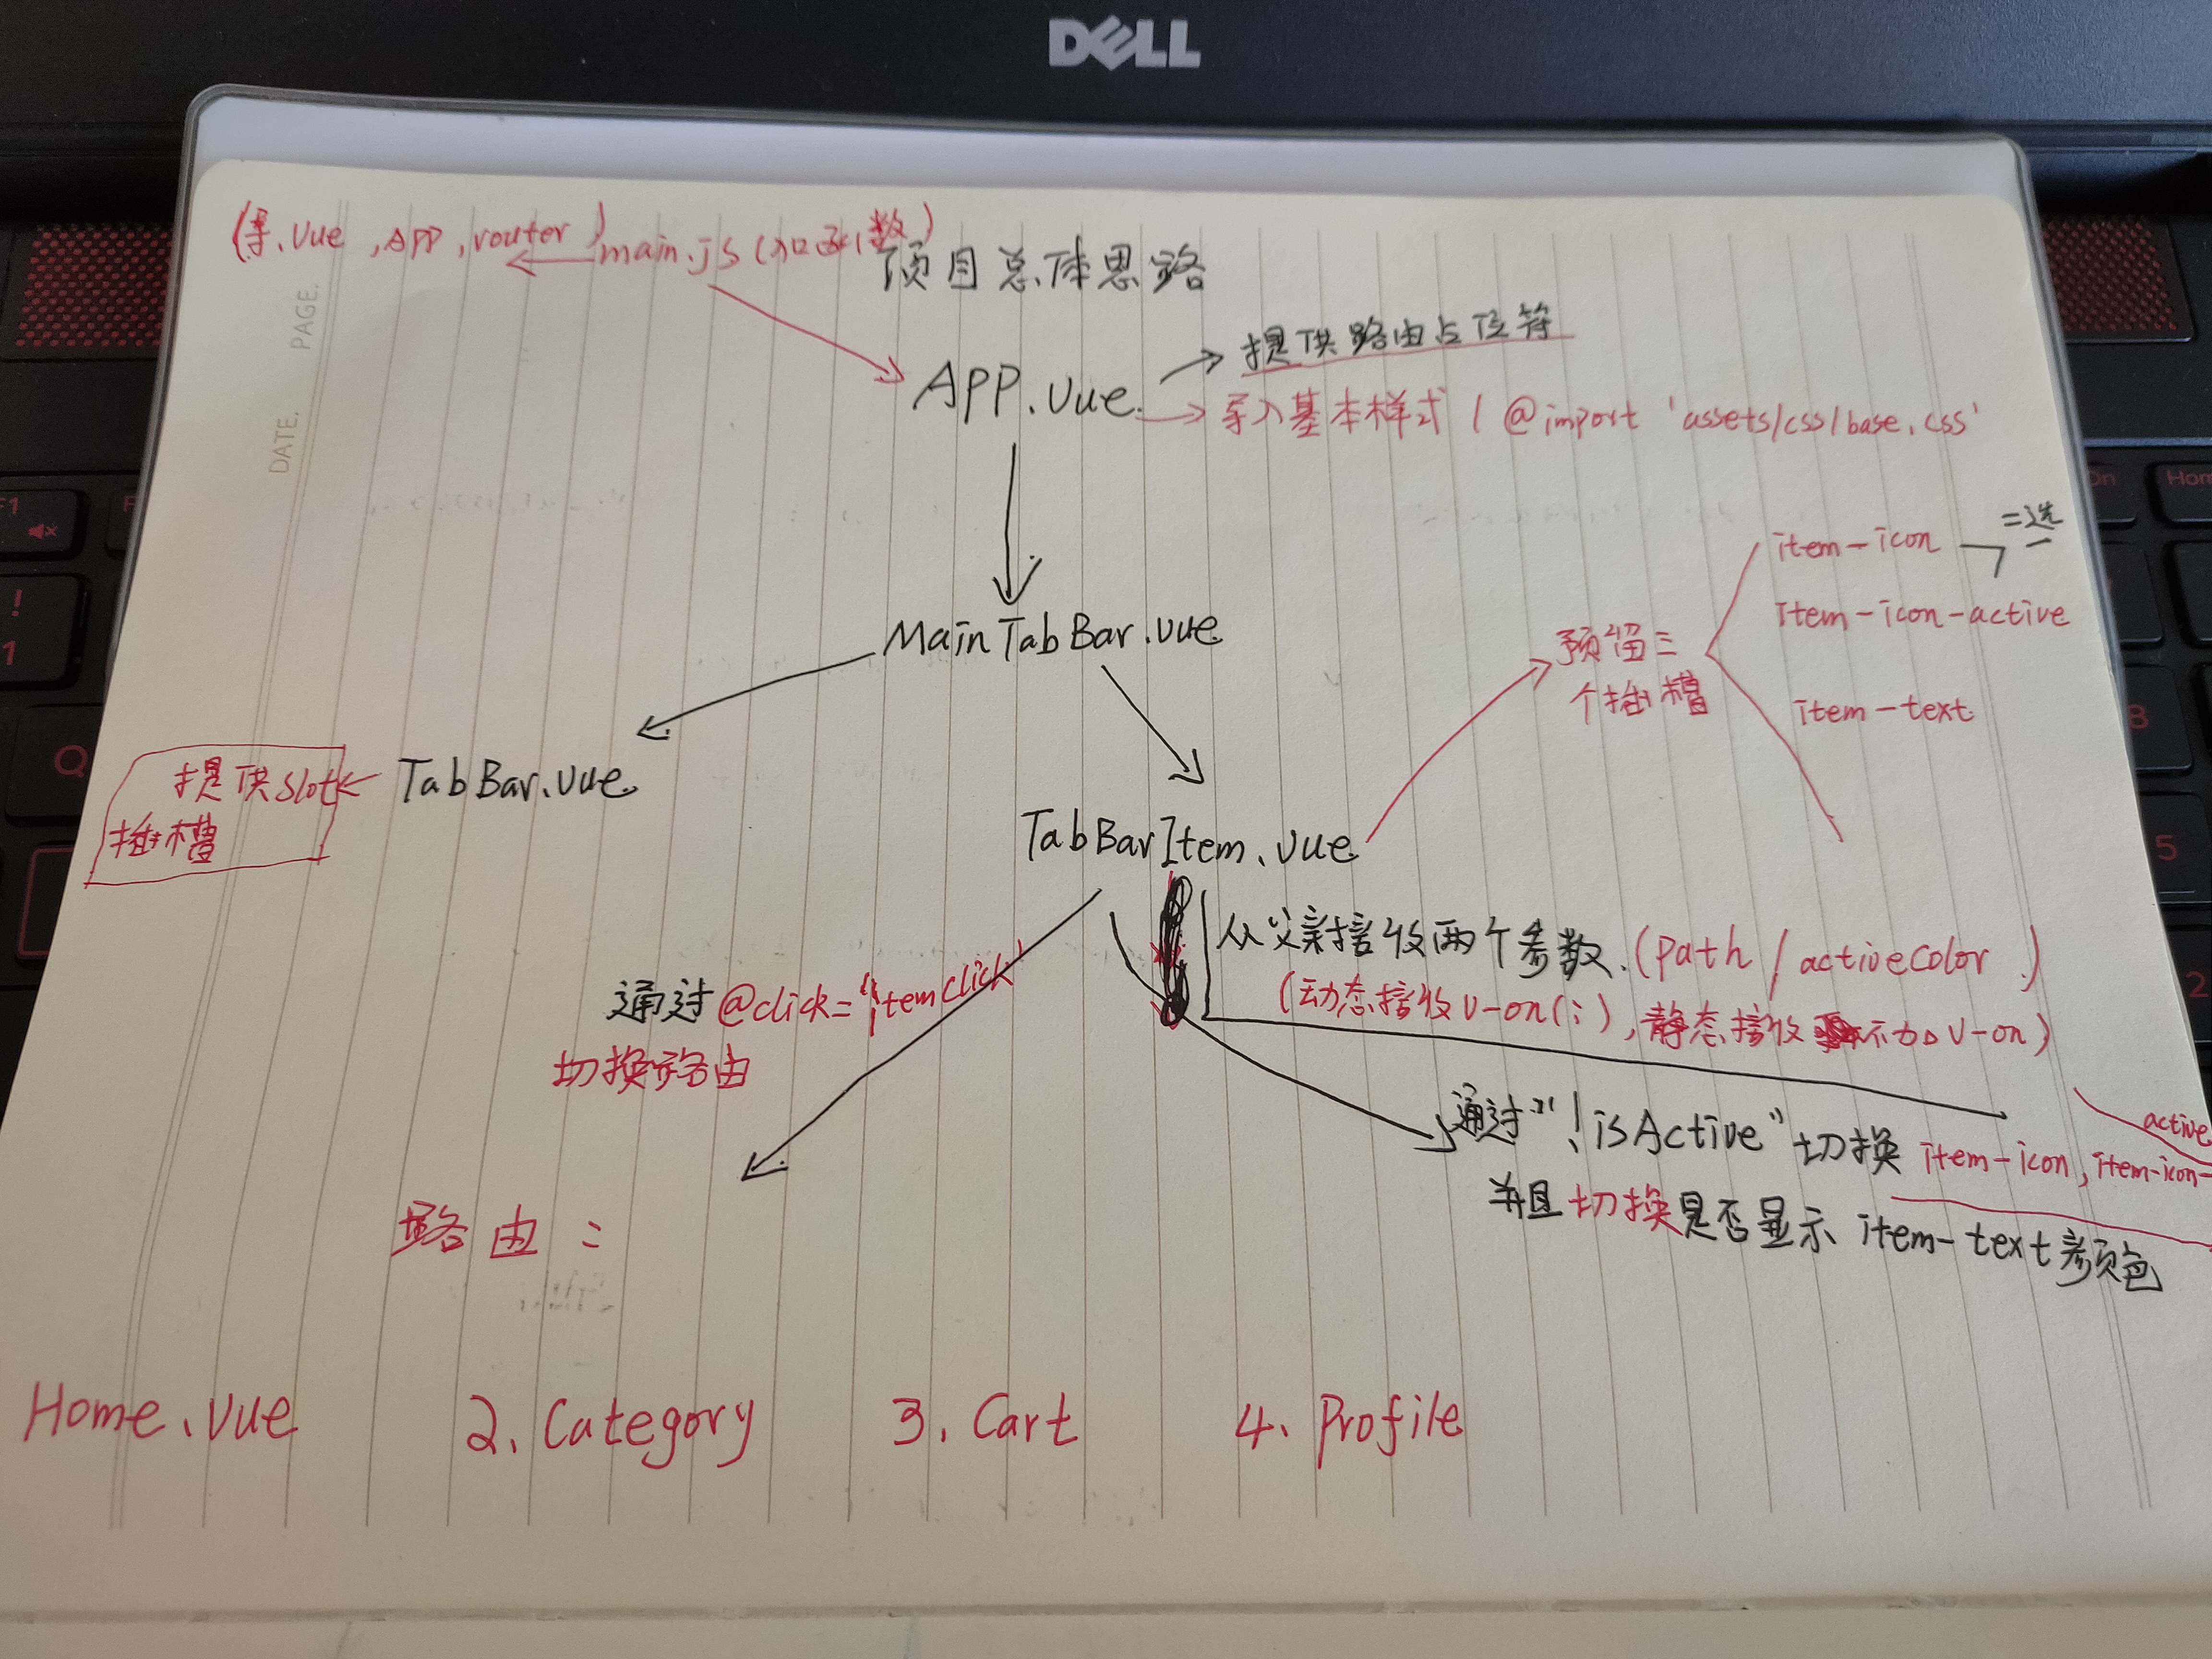 DELL
(导.Vue ,APP ,router) main.js (入口函数)
项目总体思路
PAGE.
DATE.
APP.Vue
提供路由占位符
导入基本样式 ( @import 'assets/css/base.css'
MainTabBar.vue
预留三
个插槽
item-icon
二选一
item-icon-active
item-text
提供slot
插槽
TabBar.vue
TabBarItem.vue
从父亲接收两个参数.(path / activeColor )
(动态接收v-on(:),静态接收不加v-on)
通过@click="itemClick
切换路由
通过"!isActive"切换 item-icon, item-icon-
active
并且切换是否显示 item-text颜色
路由:
Home.vue 2. Category 3. Cart 4. Profile
F1
!
1
Q
8
5
2